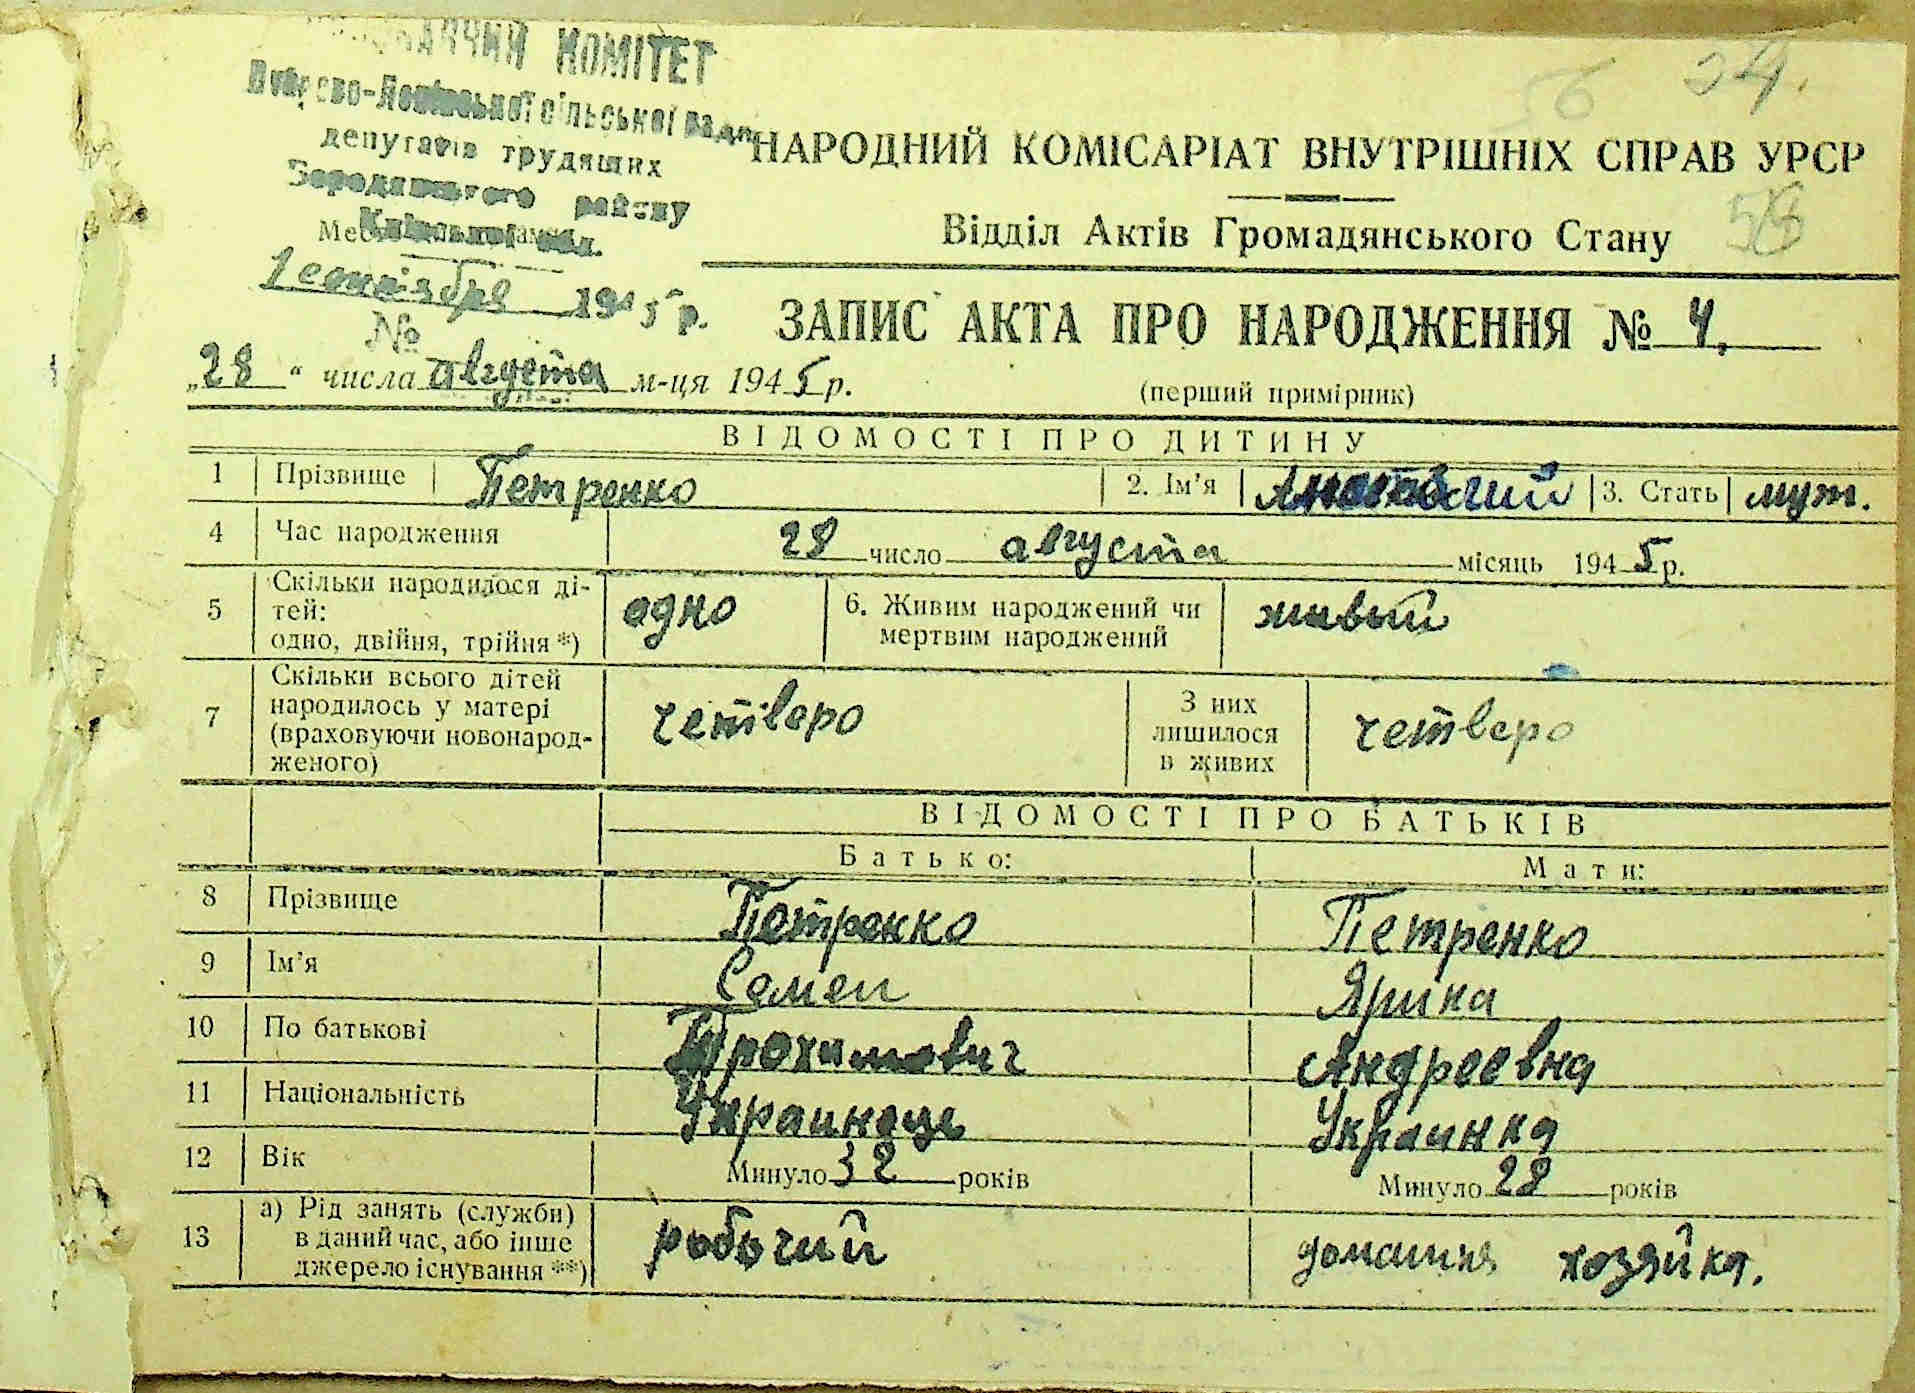 КОМІТЕТ
сільської ради
депутатів трудящих
Бородянського району
Київської обл.
1 сентября 1945 р.
№
24.
56
НАРОДНИЙ КОМІСАРІАТ ВНУТРІШНІХ СПРАВ УРСР
Відділ Актів Громадянського Стану
ЗАПИС АКТА ПРО НАРОДЖЕННЯ № 4.
„28“ числа августа м-ця 1945 р.
(перший примірник)
ВІДОМОСТІ ПРО ДИТИНУ
1 Прізвище Петренко 2. Ім’я 3. Стать муж.
4 Час народження 28 число августа місяць 1945 р.
5 Скільки народилося ді-
тей:
одно, двійня, трійня *) одно 6. Живим народжений чи
мертвим народжений живый
7 Скільки всього дітей
народилось у матері
(враховуючи новонарод-
женого) четверо З них
лишилося
в живих четверо
ВІДОМОСТІ ПРО БАТЬКІВ
Батько: Мати:
8 Прізвище Петренко Петренко
9 Ім’я Семен Ярина
10 По батькові Трохимович Андреевна
11 Національність Украинець Украинка
12 Вік Минуло 32 років Минуло 28 років
13 а) Рід занять (служби)
в даний час, або інше
джерело існування **) робочий домашня хозяйка.